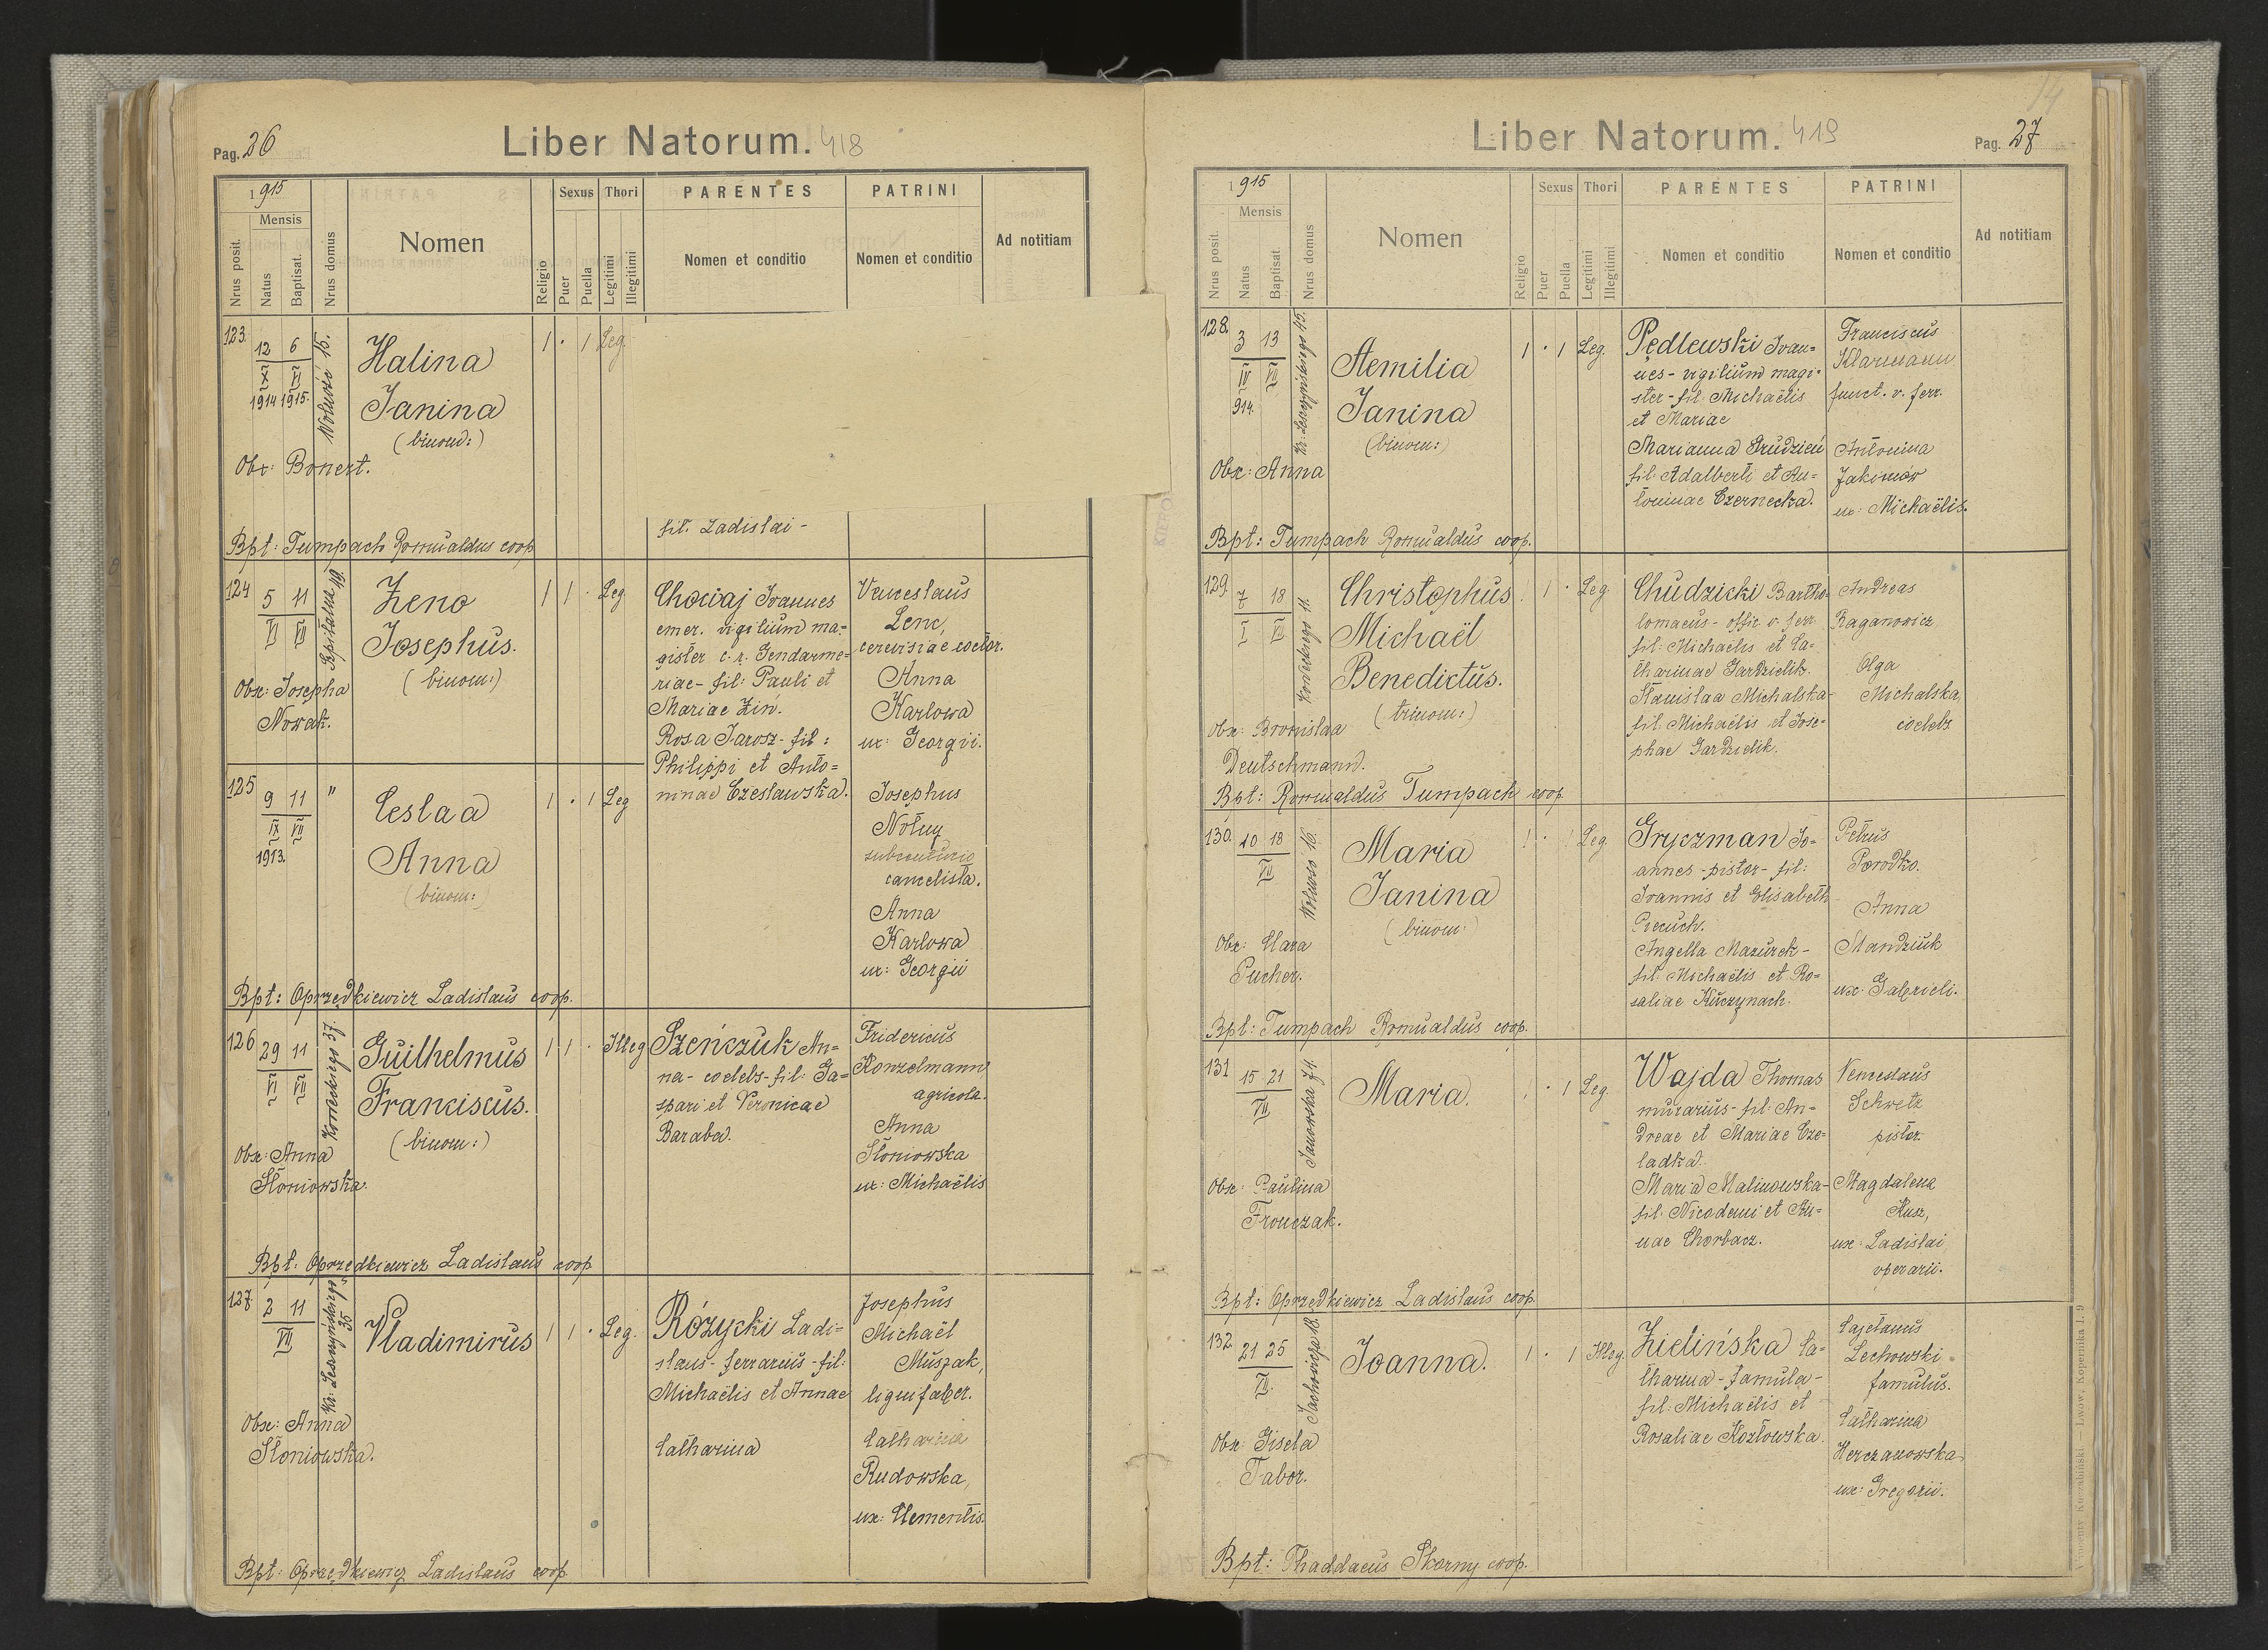 Pag. 26
Liber Natorum. 418
1915
Mensis
Nrus posit.
Natus
Baptisat.
Nrus domus
Nomen
Religio
Sexus
Puer
Puella
Thori
Legitimi
Illegitimi
PARENTES
Nomen et conditio
PATRINI
Nomen et conditio
Ad notitiam
123.
12 6
XI VI
1914 1915.
Wolność 15.
Halina
Janina
(binom:)
1 · 1 Leg.
Obx: Bonert.
fil. Ladislai -
Bpt: Tumpach Romualdus coop
124
5 11
VI VII
Szpitalna 49.
Zeno
Josephus.
(binom:)
1 1 · Leg
Obx: Josepha
Nowak.
Chociaj Joannes
emer. vigilium ma=
gister c. r. Gendarme=
riae - fil: Pauli et
Mariae Zin.
Rosa Jarosz - fil:
Philippi et Anto=
ninae Czesławska.
Venceslaus
Lenc,
cerevisiae coctor.
Anna
Karlowa
ux: Georgii.
125
9 11
IX VII
1913.
"
Ceslaa
Anna
(binom:)
1 · 1 Leg
Josephus
Notny
cancelista.
Anna
Karlowa
ux: Georgii
Bpt: Oprzędkiewicz Ladislaus coop.
126
29 11
VI VII
Kordeckiego 37.
Guilhelmus
Franciscus.
(binom:)
1 1 · Illeg
Obx: Anna
Słoniowska.
Szeńczuk An=
na - coelebs - fil: Ga=
spari et Veronicae
Baraba.
Fridericus
Konzelmann,
agricola.
Anna
Słoniowska
ux: Michaëlis
Bpt: Oprzędkiewicz Ladislaus coop
127
2 11
VII
Kr: Leszczyńskiego
35
Vladimirus
1 1 · Leg.
Obx: Anna
Słoniowska.
Różycki Ladi=
slaus - ferrarius - fil:
Michaëlis et Annae
Catharina
Josephus
Michaël
Muszak,
lignifaber.
Catharina
Rudowska,
ux: Clementis.
Bpt: Oprzędkiewicz Ladislaus coop
Liber Natorum. 419
Pag. 27
1915
Mensis
Nrus posit.
Natus
Baptisat.
Nrus domus
Nomen
Religio
Sexus
Puer
Puella
Thori
Legitimi
Illegitimi
PARENTES
Nomen et conditio
PATRINI
Nomen et conditio
Ad notitiam
128.
3 13
IV VII
914.
Kr: Leszczyńskiego 45.
Aemilia
Janina
(binom:)
1 · 1 Leg.
Obx: Anna
Pędlewski Joan=
nes - vigilium magi=
ster - fil. Michaëlis
et Mariae
Marianna Grudzień
fil: Adalberti et An=
toninae Czernecka.
Franciscus
Klarmann
funct. v. ferr.
Antonina
Jakimów
ux: Michaëlis.
Bpt: Tumpach Romualdus coop.
129.
7 18
I VII
Kordeckiego 11.
Christophus
Michaël
Benedictus.
(trinom:)
1 1 · Leg.
Obx: Bronislaa
Deutschmann.
Chudzicki Bartho=
lomaeus - offic. v. ferr
fil: Michaëlis et Ca=
tharinae Gardzielik.
Stanislaa Michalska -
fil. Michaëlis et Jose=
phae Gardzielik.
Andreas
Raganowicz
Olga
Michalska,
coelebs
Bpt: Romualdus Tumpach coop.
130.
10 18
VII
Wolność 16.
Maria
Janina
(binom:)
1 · 1 Leg.
Obx: Clara
Pucher.
Gryczman Jo=
annes - pistor - fil:
Joannis et Elisabeth
Piecuch.
Angella Mazurek -
fil: Michaëlis et Ro=
saliae Kuczynach.
Petrus
Porodko.
Anna
Mandziuk
ux: Gabrieli.
Bpt: Tumpach Romualdus coop.
131
15 21
VII
Janowska 74.
Maria.
1 · 1 Leg.
Obx: Paulina
Fronczak.
Wajda Thomas
murarius - fil: An=
dreae et Mariae Cze=
ladka.
Maria Malinowska -
fil. Nicodemi et An=
nae Chorbacz.
Venceslaus
Schwetz
pistor.
Magdalena
Kusz,
ux: Ladislai
operarii.
Bpt: Oprzędkiewicz Ladislaus coop.
132.
21 25
VII.
Sachowicza 18.
Joanna.
1 · 1 Illeg.
Obx: Gisela
Tabor.
Zielińska Ca=
tharina - famula -
fil: Michaëlis et
Rosaliae Kozłowska.
Cajetanus
Lechowski -
famulus.
Catharina
Herczanowska
ux: Gregorii.
Bpt: Thaddaeus Skorny coop.
Lwów, Kopernika l. 9